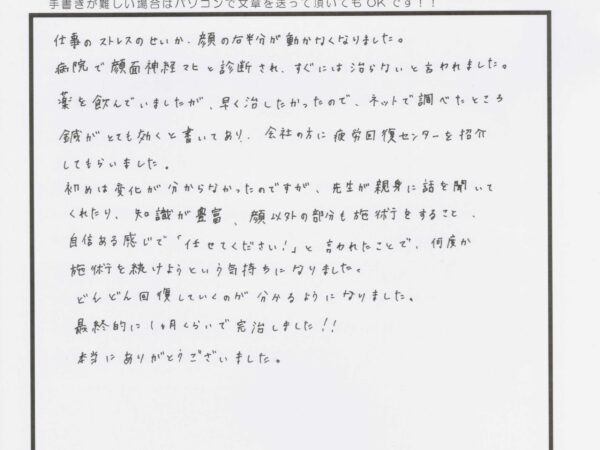 手書きが難しい場合はパソコンで文章を送って頂いてもOKです！！
仕事のストレスのせいか、顔の右半分が動かなくなりました。
病院で顔面神経マヒと診断され、すぐには治らないと言われました。
薬を飲んでいましたが、早く治したかったので、ネットで調べたところ
鍼がとても効くと書いてあり、会社の方に疲労回復センターを紹介
してもらいました。
初めは変化が分からなかったのですが、先生が親身に話を聞いて
くれたり、知識が豊富、顔以外の部分も施術をすること、
自信ある感じで「任せてください!」と言われたことで、何度か
施術を続けようという気持ちになりました。
どんどん回復していくのが分かるようになりました。
最終的に1ヶ月くらいで完治しました!!
本当にありがとうございました。